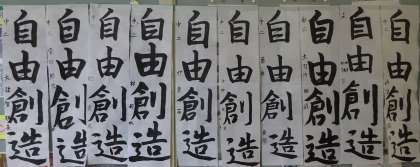 自由創造
自由創造
自由創造
自由創造
自由創造
自由創造
自由創造
自由創造
自由創造
自由創造